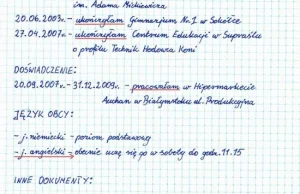 im. Adama Mickiewicza
20.06.2003r. - ukończyłam Gimnazjum Nr.1 w Sokółce
27.04.2007r. - ukończyłam Centrum Edukacji w Supraślu
o profilu Technik Hodowca Koni
DOŚWIADCZENIE:
20.09.2007r. - 31.12.2009r. - pracowałam w Hipermarkecie
Auchan w Białymstoku ul. Produkcyjna
JĘZYK OBCY:
- j. niemiecki - poziom podstawowy
- j. angielski - obecnie uczę się go w soboty do godz. 11.15
INNE DOKUMENTY: